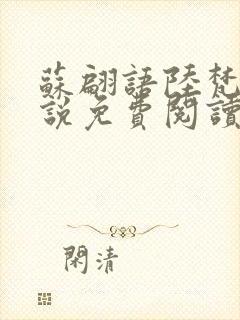 蘇翩語陸梵
說免費閱讀
閑清